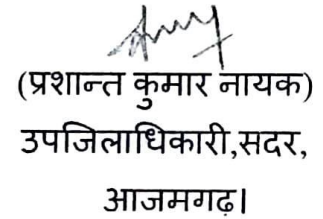 (प्रशान्त कुमार नायक)
उपजिलाधिकारी,सदर,
आजमगढ़।